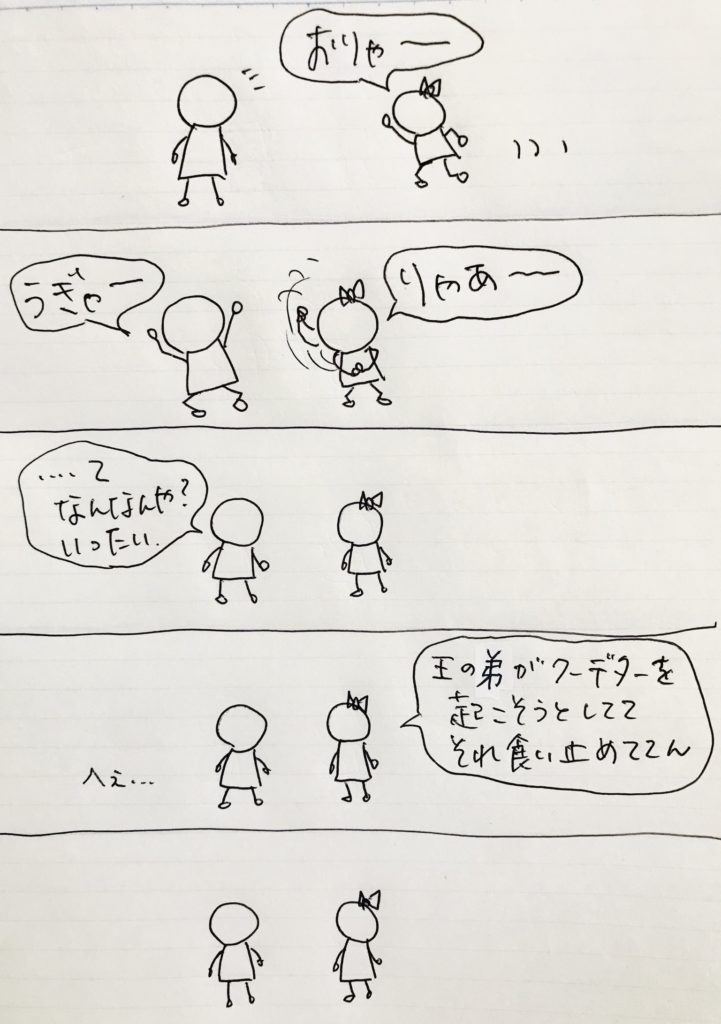 おりゃー
りゃあ〜
うぎゃー
....て
なんなんや?
いったい.
王の弟がクーデターを
起こそうとしてて
それ食い止めててん
へぇ...